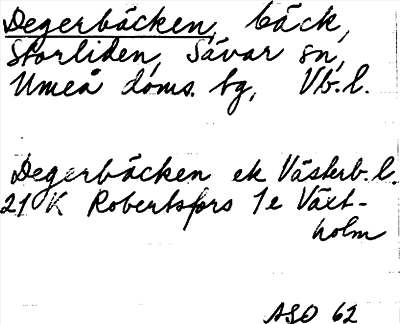 Degerbäcken, bäck,
Storliden, Sävar sn,
Umeå doms. tg, Vb.l.
Degerbäcken ek Västerb.l.
21 K Robertsfors 1e Växt-
holm
ASO 62